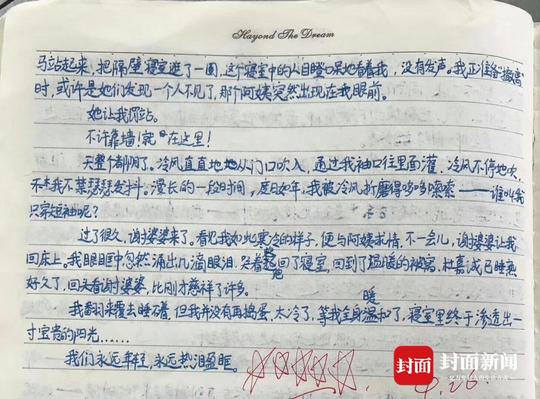 Hayond The Dream
马站起来，把隔壁寝室逛了一圈，这个寝室中的人目瞪口呆地看着我，没有发声。我正准备"撤离"
时，或许是她们发现一个人不见了，那个阿姨突然出现在我眼前。
她让我罚站。
不许靠墙！就 在这里！
天整个都阴了。冷风直直地从门口吹入，通过我袖口往里面灌，冷风不停地吹，
我不禁瑟瑟发抖。漫长的一段时间，度日如年，我被冷风折磨得哆哆嗦嗦——谁叫我
只穿短袖呢？
过了很久，谢婆婆来了。看见我如此寒冷的样子，便与阿姨求情，不一会儿，谢婆婆让我
回床上。我眼眶中忽然涌出几滴眼泪，哭着 回了寝室，回到了温暖的被窝，杜嘉成已睡熟
好久了，回头看谢婆婆，比刚才慈祥了许多。
暖
我翻来覆去睡不着，但我并没有再捣蛋，太冷了，等我全身温和了，寝室里终于渗透出一
寸宝贵的阳光……
我们永远年轻，永远热泪盈眶。
4.26
封面 封面新闻